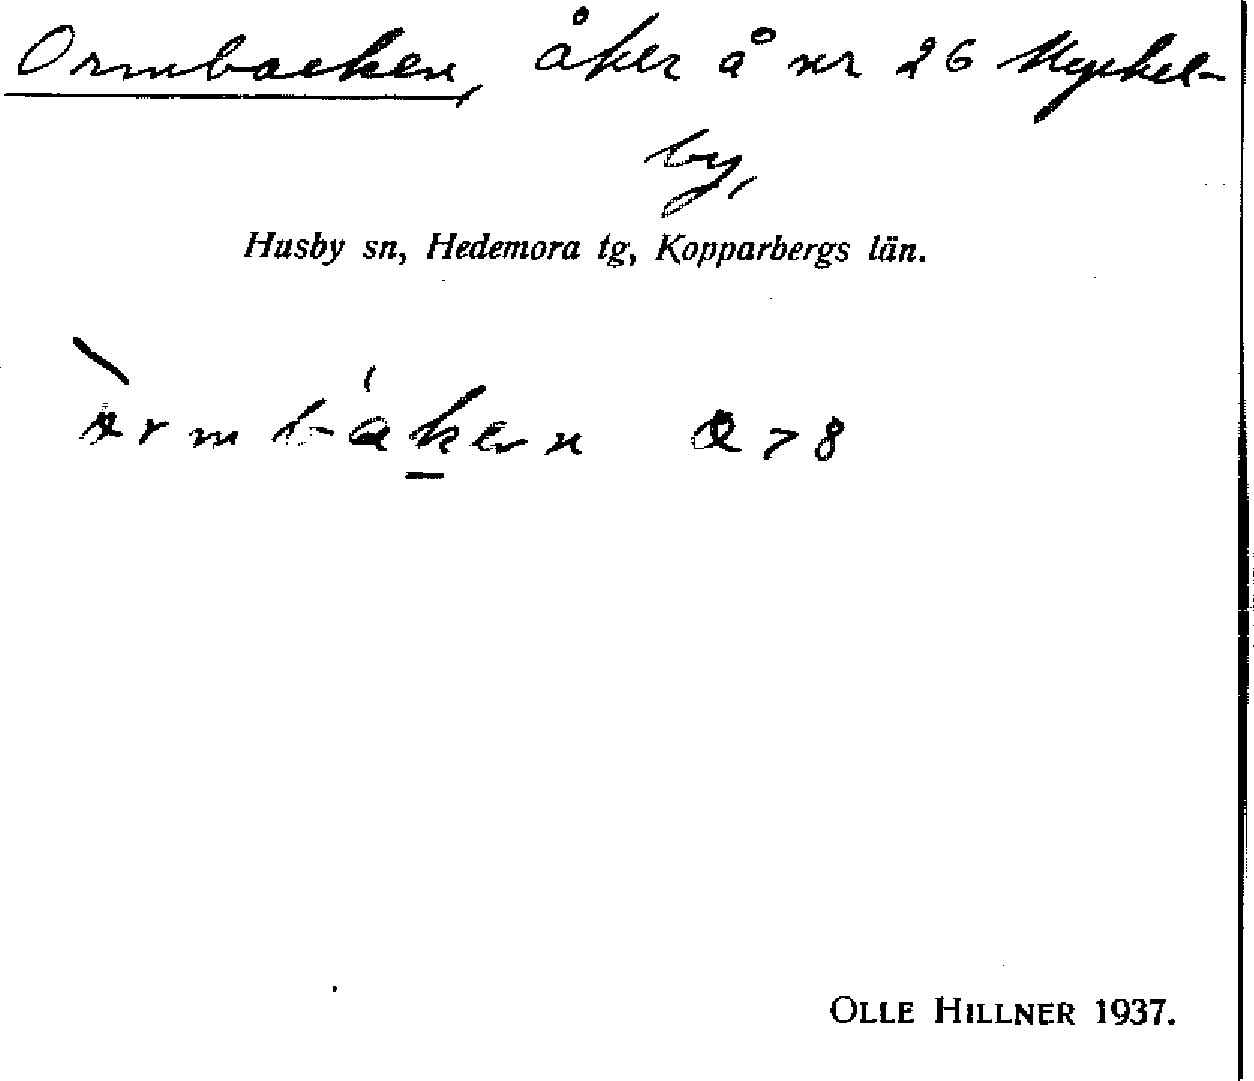 Ormbacken, åker å nr 26 Myckel-
by,
Husby sn, Hedemora tg, Kopparbergs län.
òrmbáken
OLLE HILLNER 1937.